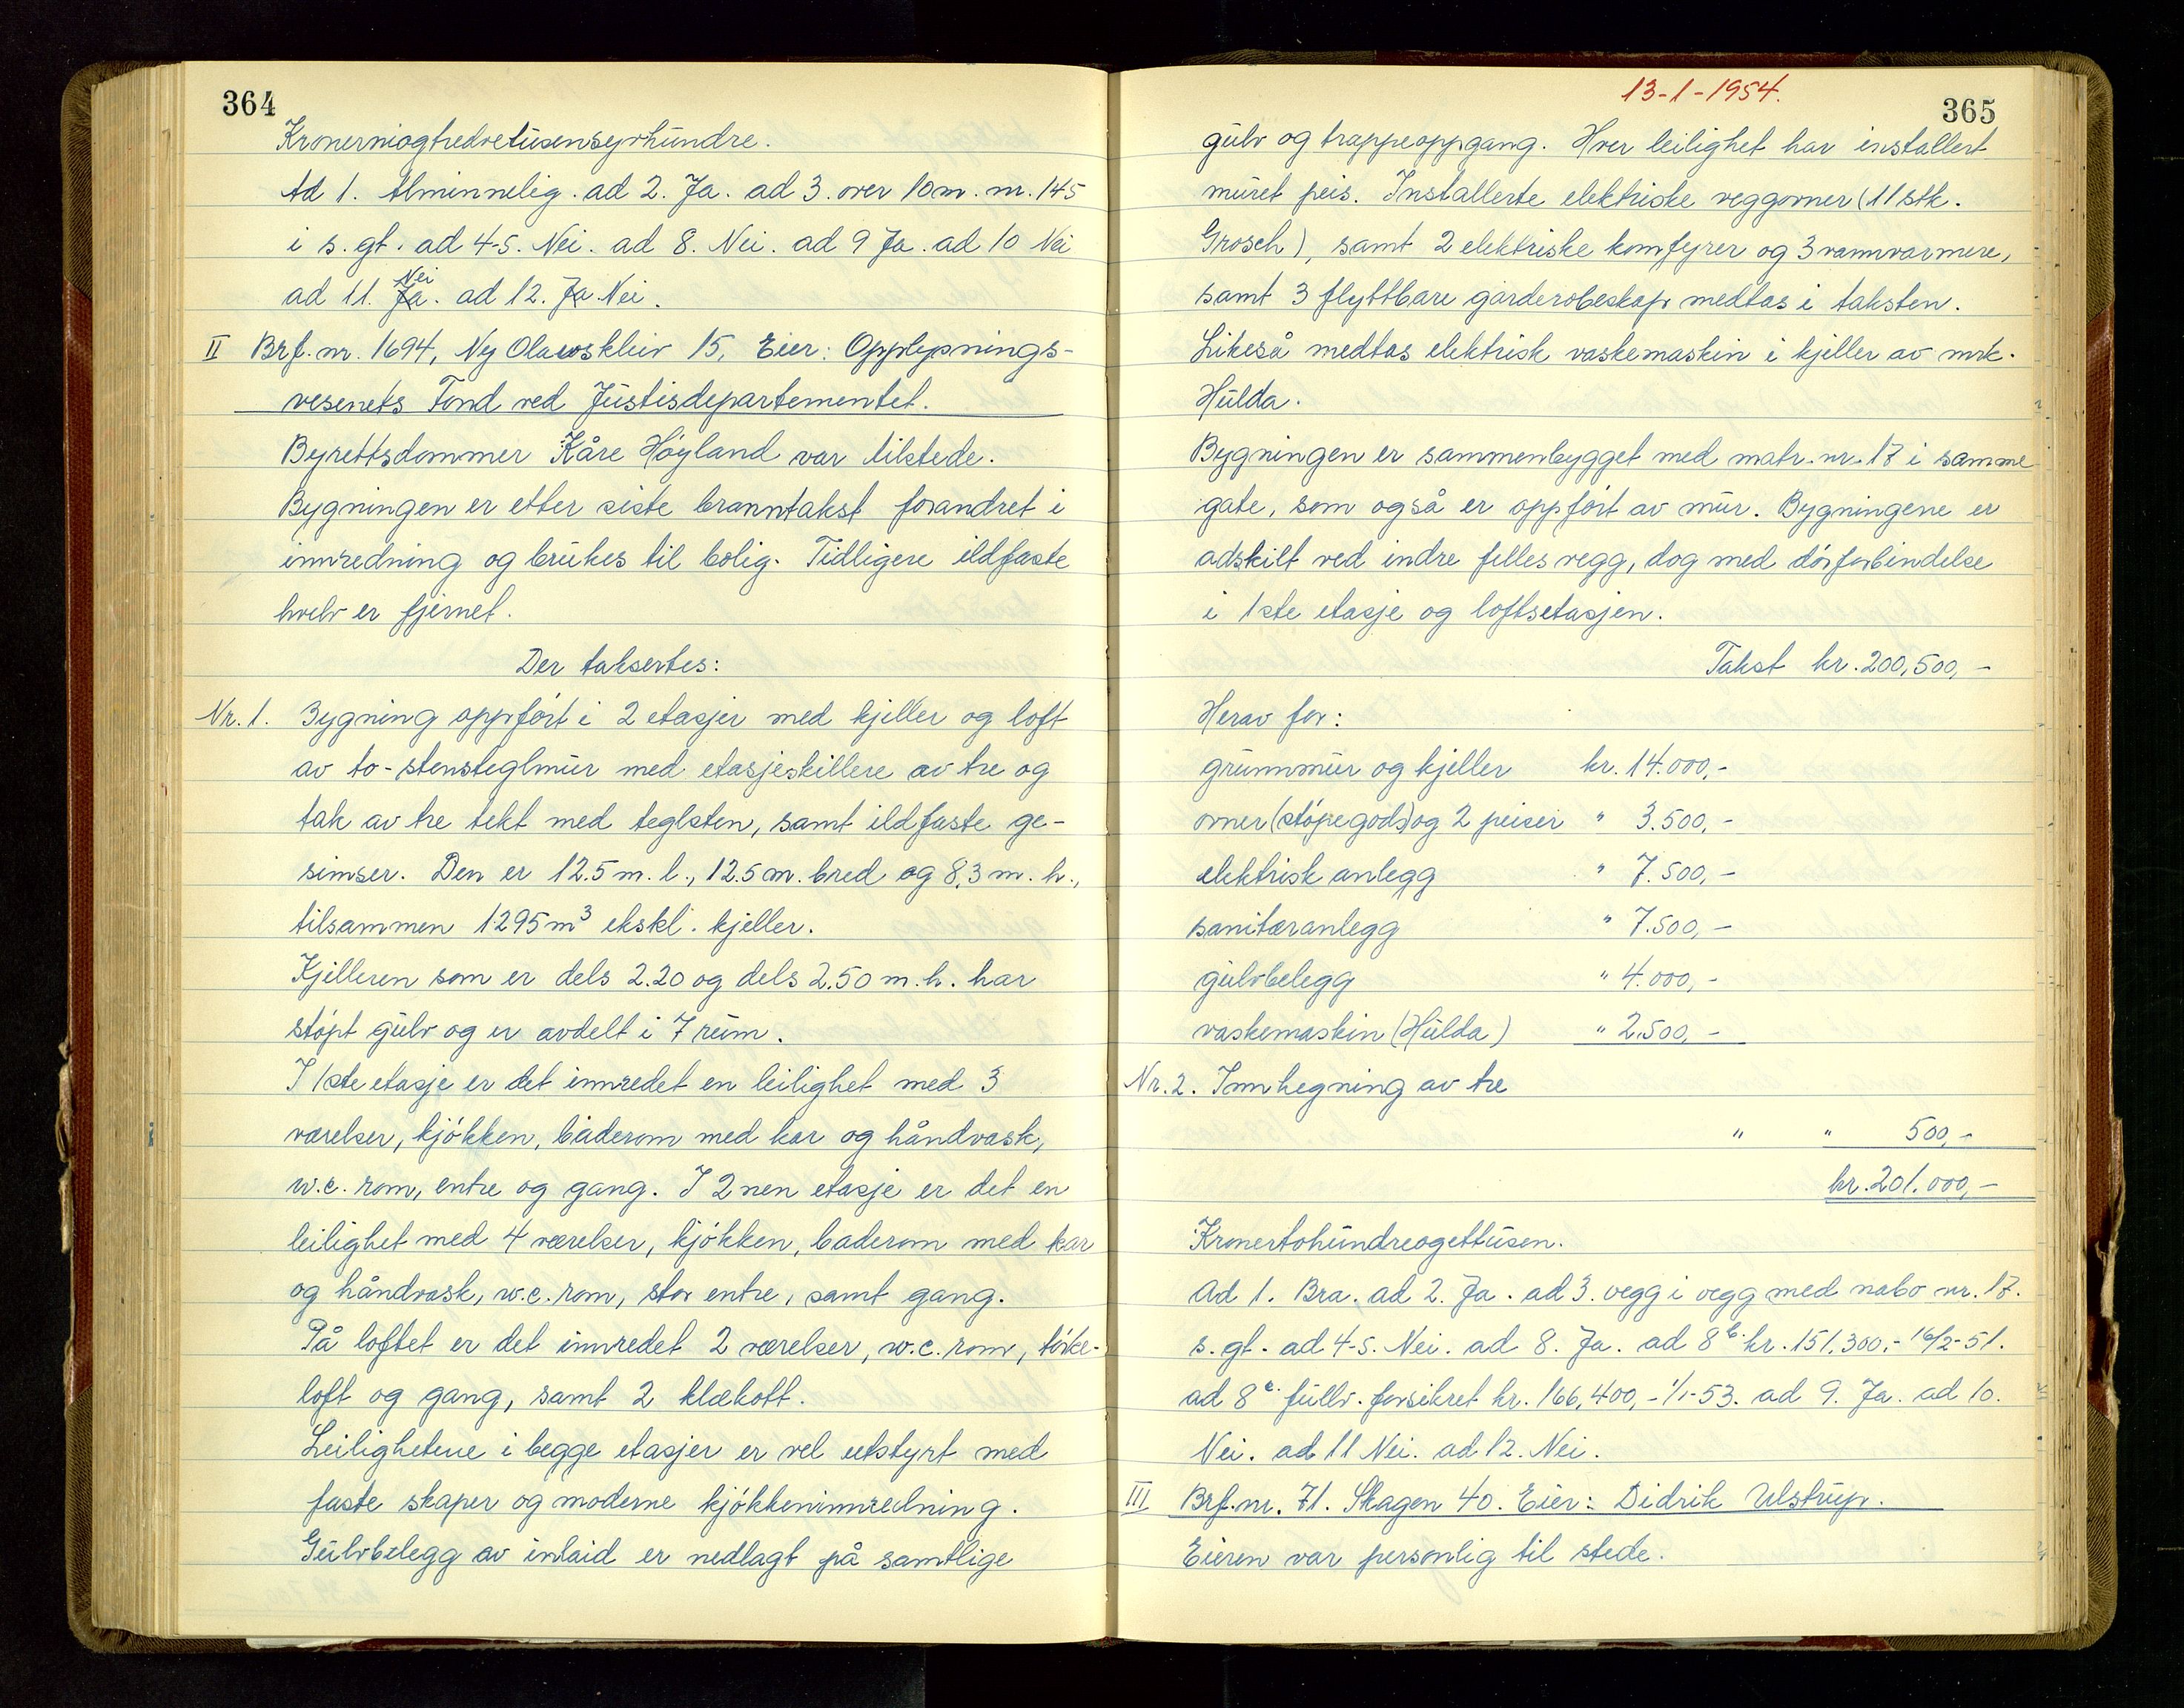 364
Kronerniogtredvetusensyvhundre.
Ad 1. Alminnelig. ad 2. Ja. ad 3. over 10 m. nr. 145
i s. gt. ad 4-5. Nei. ad 8. Nei. ad 9 Ja. ad 10 Nei
Nei
ad 11. Ja. ad 12. Ja Nei.
II Brf. nr. 1694, Ny Olavskleiv 15, Eier: Opplysnings-
vesenets Fond ved Justisdepartementet.
Byrettsdommer Kåre Höyland var tilstede.
Bygningen er etter siste branntakst forandret i
innredning og brukes til bolig. Tidligere ildfaste
hvelv er fjernet.
Der taksertes:
Nr. 1. Bygning oppfört i 2 etasjer med kjeller og loft
av to-stensteglmur med etasjeskillere av tre og
tak av tre tekt med teglsten, samt ildfaste ge-
simser. Den er 12.5 m. l., 12.5 m. bred og 8,3 m. h.,
tilsammen 1295 m³ ekskl. kjeller.
Kjelleren som er dels 2.20 og dels 2.50 m. h. har
stöpt gulv og er avdelt i 7 rum.
I 1ste etasje er det innredet en leilighet med 3
værelser, kjökken, baderom med kar og håndvask,
w.c. rom, entre og gang. I 2nen etasje er det en
leilighet med 4 værelser, kjökken, baderom med kar
og håndvask, w.c. rom, stor entre, samt gang.
På loftet er det innredet 2 værelser, w.c. rom, törke-
loft og gang, samt 2 klekott.
Leilighetene i begge etasjer er vel utstyrt med
faste skaper og moderne kjökkeninnredning.
Gulvbelegg av inlaid er nedlagt på samtlige
13-1-1954.
365
gulv og trappeoppgang. Hver leilighet har installert
muret peis. Installerte elektriske veggovner (11 stk.
Grosch), samt 2 elektriske komfyrer og 3 vannvarmere,
samt 3 flyttbare garderobeskap medtas i taksten.
Likeså medtas elektrisk vaskemaskin i kjeller av mrk.
Hulda.
Bygningen er sammenbygget med matr. nr. 17 i samme
gate, som også er oppfört av mur. Bygningene er
adskilt ved indre felles vegg, dog med dörforbindelse
i 1ste etasje og loftsetasjen.
Takst kr. 200,500,-
Herav for:
grunnmur og kjeller kr. 14.000,-
ovner (stöpegods) og 2 peiser " 3.500,-
elektrisk anlegg " 7.500,-
sanitæranlegg " 7.500,-
gulvbelegg " 4.000,-
vaskemaskin (Hulda) " 2.500,-
Nr. 2. Innhegning av tre
" " 500,-
kr. 201.000,-
Kronertohundreogettusen.
Ad 1. Bra. ad 2. Ja. ad 3. vegg i vegg med nabo nr. 17.
s. gt. ad 4-5. Nei. ad 8. Ja. ad 8b. kr. 151.300,- 16/2-51.
ad 8c. fullv. forsikret kr. 166,400,- 1/1-53. ad 9. Ja. ad 10.
Nei. ad 11 Nei. ad 12. Nei.
III Brf. nr. 71. Skagen 40. Eier: Didrik Ulstrup.
Eieren var personlig til stede.